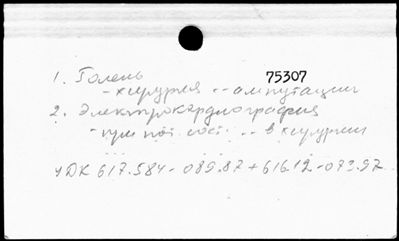 1. Голень
75307
- хирургия -- ампутации
2. Электрокардиография
- при пат. сост. -- в хирургии
УДК 617.584-089.87+616.12-073.97